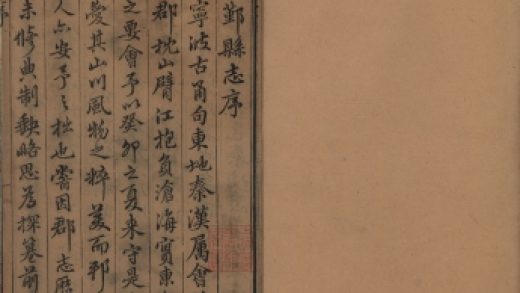 鄞縣志序
寧波古甬句東地秦漢属會
郡枕山臂江抱負滄海實東
之要會予以癸卯之夏来守是
愛其山川風物之粹美而邦
人亦安予之拙也嘗因郡志歷
未脩典制缺略思為採纂前
序